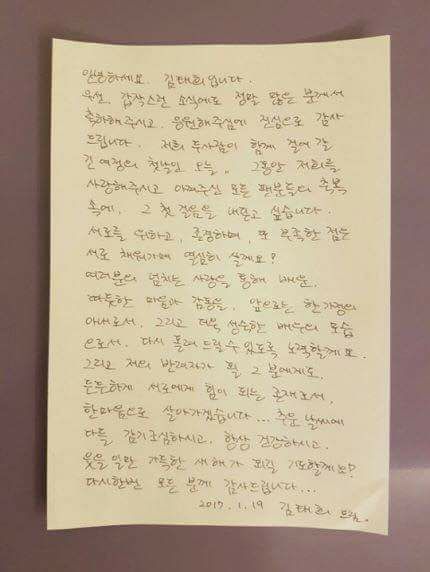 안녕하세요. 김태희입니다.
우선, 갑작스런 소식에도 정말 많은 분께서
축하해주시고, 응원해주심에 진심으로 감사
드립니다. 저희 두사람이 함께 걸어 갈
긴 여정의 첫날인 오늘,, 그동안 저희를
사랑해주시고 아껴주신 모든 팬분들의 축복
속에, 그 첫 걸음을 내딛고 싶습니다.
서로를 위하고, 존경하며, 또 부족한 점은
서로 채워가며 열심히 살게요?
여러분의 넘치는 사랑을 통해 배운,
따듯한 마음과 감동을, 앞으로는 한 가정의
아내로서, 그리고 더욱 성숙한 배우의 모습
으로서, 다시 돌려 드릴 수 있도록 노력할게요.
그리고 저의 반려자가 될 그 분에게도,
든든하게 서로에게 힘이 되는 존재로서,
한마음으로 살아가겠습니다... 추운 날씨에
다들 감기조심하시고, 항상 건강하시고,
웃을 일만 가득한 새해가 되길 기도할게요?
다시한번 모든 분께 감사드립니다...
2017. 1. 19 김태희 드림.